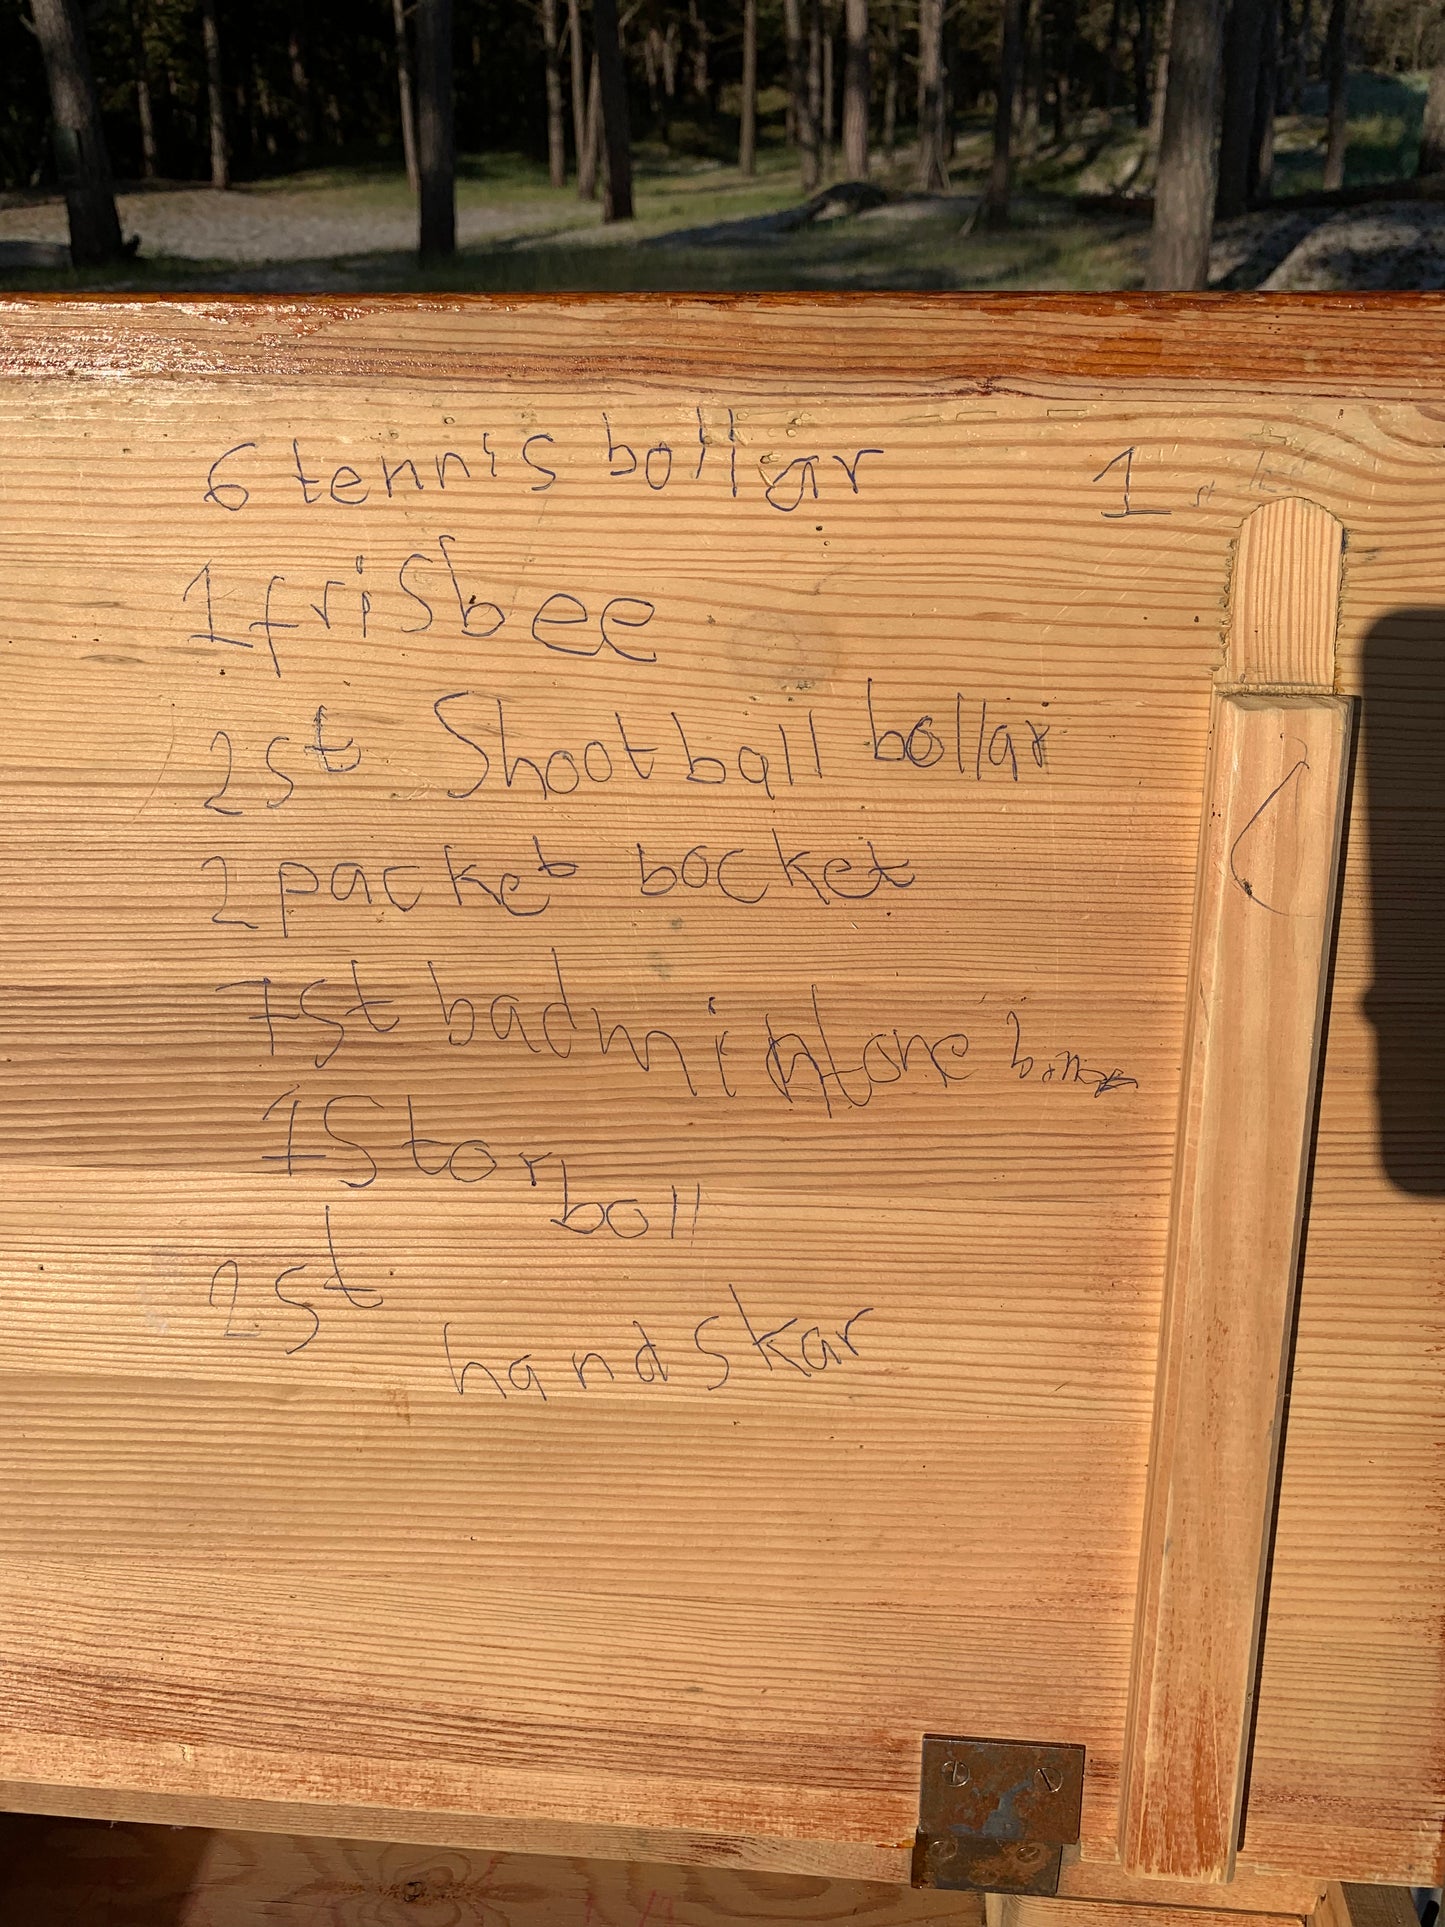 6 tennis bollar 1 st
1 frisbee
2 st Shootball bollar
2 packet bocket
1 st badmintone
1 Stor
boll
2 st
handskar